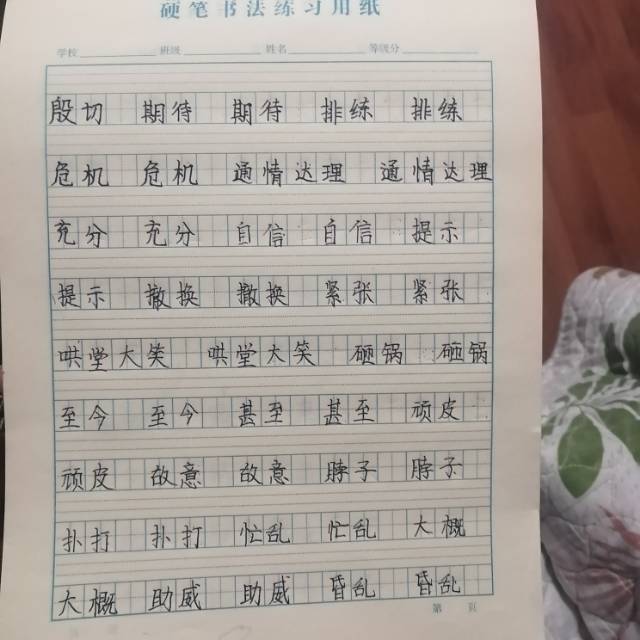 硬笔书法练习用纸
学校 班级 姓名 等级分
殷切 期待 期待 排练 排练
危机 危机 通情达理 通情达理
充分 充分 自信 自信 提示
提示 撤换 撤换 紧张 紧张
哄堂大笑 哄堂大笑 砸锅 砸锅
至今 至今 甚至 甚至 顽皮
顽皮 故意 故意 脖子 脖子
扑打 扑打 忙乱 忙乱 大概
大概 助威 助威 昏乱 昏乱
第 页